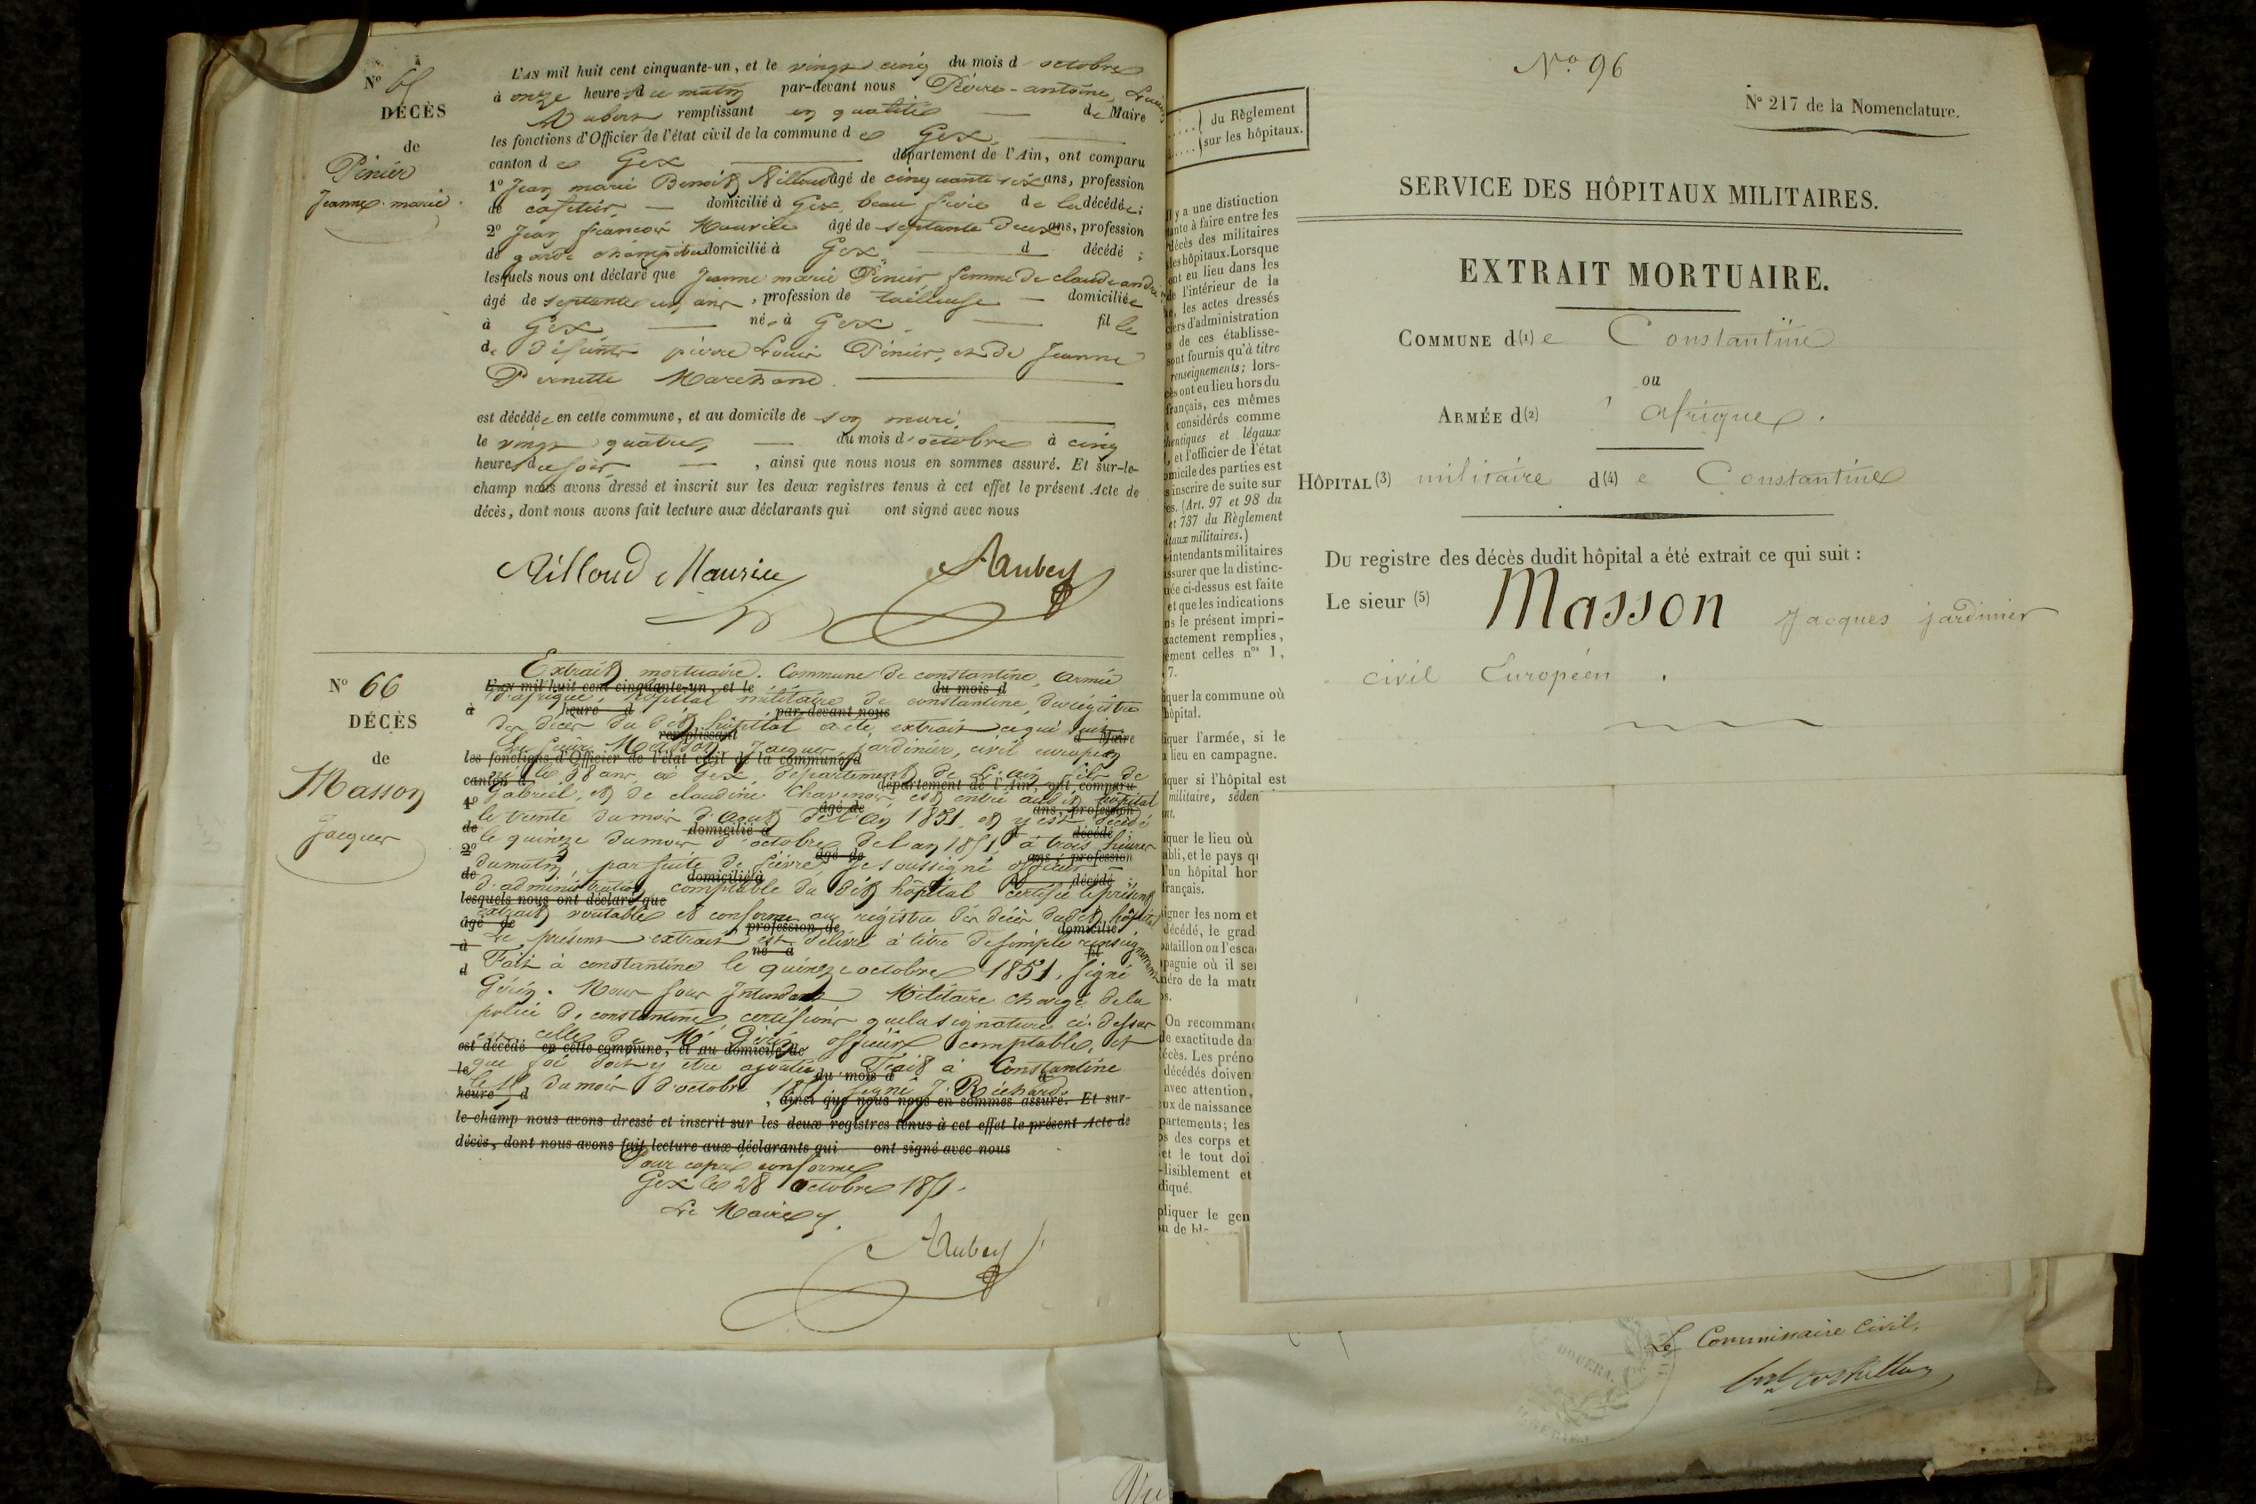 Nº 65
DÉCÈS
de
Pinier
Jeanne marie
L'AN mil huit cent cinquante-un, et le vingt cinq du mois d'octobre
à onze heures du matin par-devant nous Pierre-antoine
Aubert remplissant en qualité de Maire
les fonctions d'Officier de l'état civil de la commune de Gex
canton de Gex département de l'Ain, ont comparu
1º Jean marie Benoit Nilloud âgé de cinquante six ans, profession
de cafetier domicilié à Gex, beau frère de la décédée;
2º Jean françois Maurice âgé de septante deux ans, profession
de garde champêtre domicilié à Gex d décédé;
lesquels nous ont déclaré que Jeanne marie Pinier femme de claude
âgé de septante un ans, profession de tailleuse domiciliée
à Gex née à Gex fille
de défunts pierre Louis Pinier, et de Jeanne
Pernette Marchand
est décédée en cette commune, et au domicile de son mari,
le vingt quatre du mois d'octobre à cinq
heures du soir, ainsi que nous nous en sommes assuré. Et sur-le-
champ nous avons dressé et inscrit sur les deux registres tenus à cet effet le présent Acte de
décès, dont nous avons fait lecture aux déclarants qui ont signé avec nous
Nilloud Maurice Aubert
Nº 66
DÉCÈS
de
Masson
Jacques
Extrait mortuaire. Commune de constantine, armée
L'AN mil huit cent cinquante-un, et le du mois d
d'afrique hopital militaire de constantine, du régistre
à heure d par-devant nous
des décès du dit hôpital a été extrait ce qui suit:
remplissant d Maire
Le sieur Masson Jacques jardinier, civil européen
les fonctions d'Officier de l'état civil d la commune d
né le 38 ans, à Gex, département de L'ain fils de
canton d département de l'Ain, ont comparu
Gabriel, et de claudine Chavenor, est entré audit hôpital
1º âgé de ans, profession
le trente du mois d'Aout de l'an 1851, et y est décédé
de domicilié à d décédé
le quinze du mois d'octobre de l'an 1851, à trois heures
2º âgé de ans, profession
du matin, par suite de fièvre, Je soussigné officier
de domicilié à d décédé
d'administration comptable du dit hôpital certifie le présent
lesquels nous ont déclaré que
extrait véritable et conforme au régistre des décès dudit hôpital
âgé de, profession de domicilié
Le présent extrait est délivré à titre de simple renseignement
à né à fil
Fait à constantine le quinze octobre 1851, signé
d
Gérin. Nous sous Intendant Militaire chargé de la
police de constantine certifions que la signature ci-dessus
est celle de Mr Gérin officier comptable, et
est décédé en cette commune, et au domicile de
que foi doit y être ajoutée Fait à Constantine
le du mois d à
le 15 du mois d'octobre 1851 signé J. Richard
heure d, ainsi que nous nous en sommes assuré. Et sur-
le-champ nous avons dressé et inscrit sur les deux registres tenus à cet effet le présent Acte de
décès, dont nous avons fait lecture aux déclarants qui ont signé avec nous
Pour copie conforme
Gex le 28 octobre 1851.
Le Maire
Aubert
du Règlement
sur les hôpitaux.
Il y a une distinction
à faire entre les
décès des militaires
les hôpitaux. Lorsque
ont eu lieu dans les
de l'intérieur de la
les actes dressés
d'administration
de ces établisse-
sont fournis qu'à titre
renseignements; lors-
ont eu lieu hors du
français, ces mêmes
considérés comme
et légaux
et l'officier de l'état
domicile des parties est
inscrire de suite sur
(Art. 97 et 98 du
et 737 du Règlement
militaires.)
intendants militaires
assurer que la distinc-
ci-dessus est faite
et que les indications
le présent impri-
exactement remplies,
celles nos 1,
7.
la commune où
hôpital.
l'armée, si le
a lieu en campagne.
si l'hôpital est
militaire, séden
le lieu où
et le pays
un hôpital hor
français.
les nom et
décédé, le grad
bataillon ou l'esca
où il se
de la matr
On recomman
exactitude da
décès. Les préno
décédés doiven
avec attention,
de naissance
les
des corps et
et le tout doi
lisiblement et
le gen
Nº 96
Nº 217 de la Nomenclature.
SERVICE DES HÔPITAUX MILITAIRES.
EXTRAIT MORTUAIRE.
COMMUNE d(1)e Constantine
ou
ARMÉE d(2)' afrique.
HÔPITAL(3) militaire d(4)e Constantine
Du registre des décès dudit hôpital a été extrait ce qui suit :
Le sieur (5) Masson Jacques jardinier
civil Européen.
Le Commissaire Civil,
DOUERA